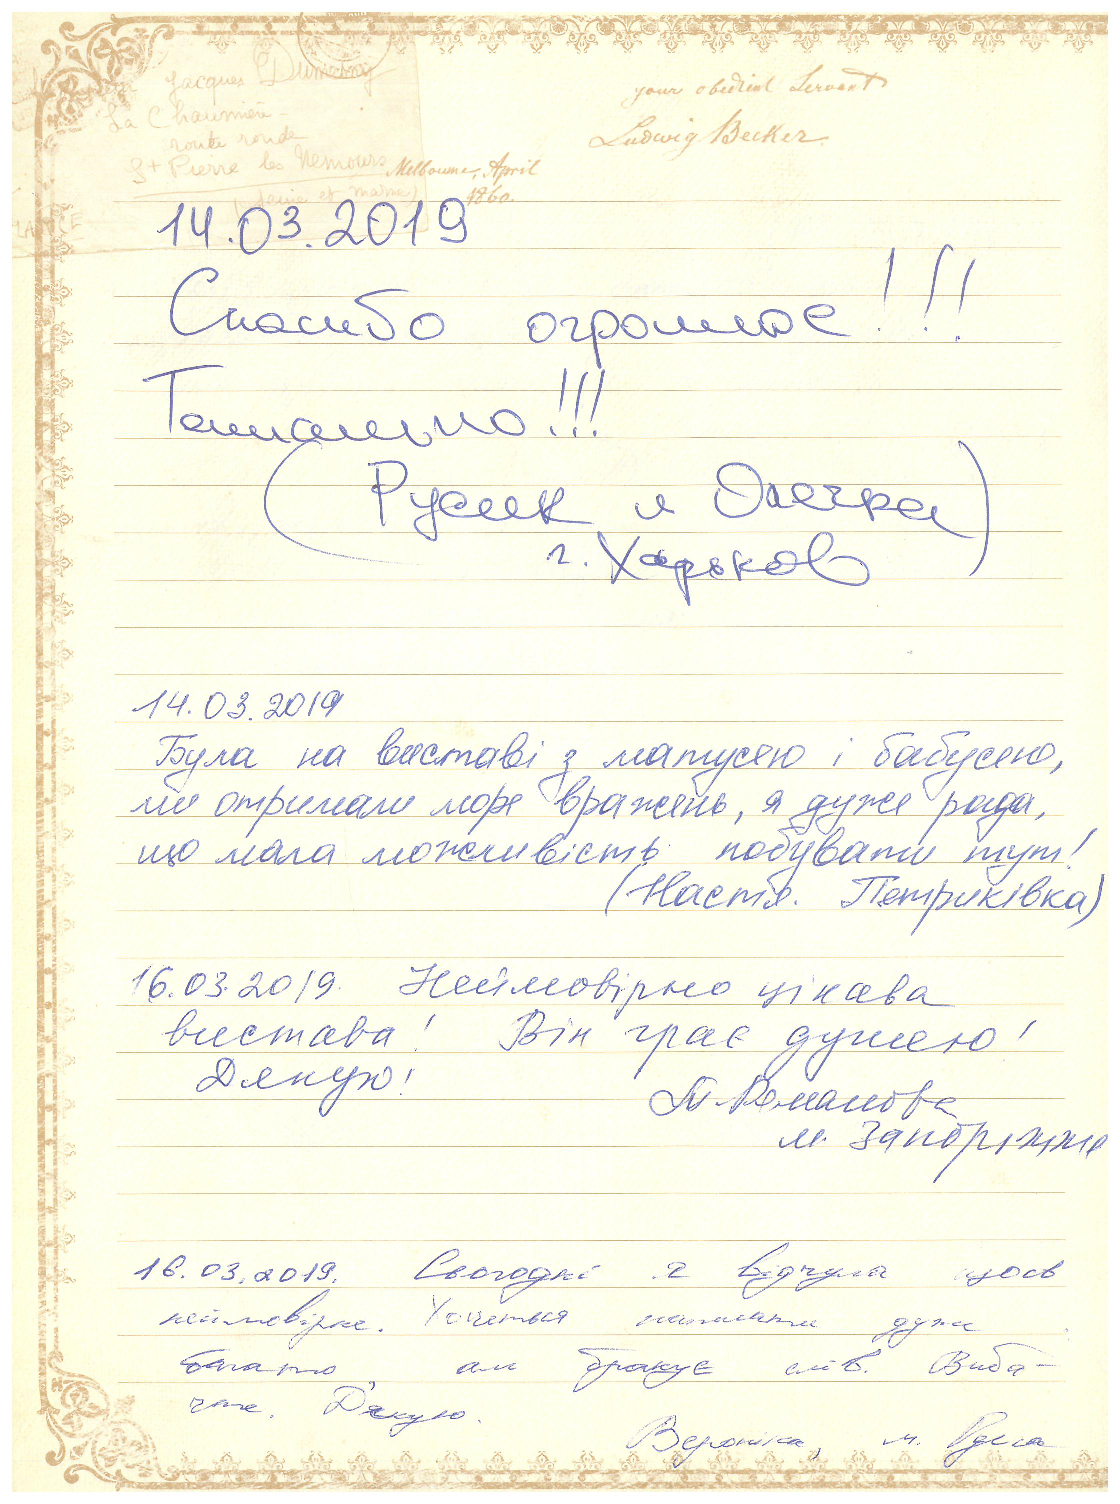 Jacques Dumesny
La Chaumière
route ronde
St Pierre les Nemours
(Seine et Marne)
your obedient Servant
Ludwig Becker.
Melbourne, April
1860.
14.03.2019
Спасибо огромное!!!
Тотально!!!
(Русик и Олечка)
г. Харьков
14.03.2019
Була на виставі з матусею і бабусею,
ми отримали море вражень, я дуже рада,
що мала можливість побувати тут!
(Настя. Петриківка)
16.03.2019. Неймовірно цікава
вистава! Він грає душею!
Дякую!
Т. Романова
м. Запоріжжя
16.03.2019. Сьогодні я відчула щось
неймовірне. Хочеться написати дуже
багато, але бракує слів. Виба-
чте. Дякую.
Вероніка, м. Одеса